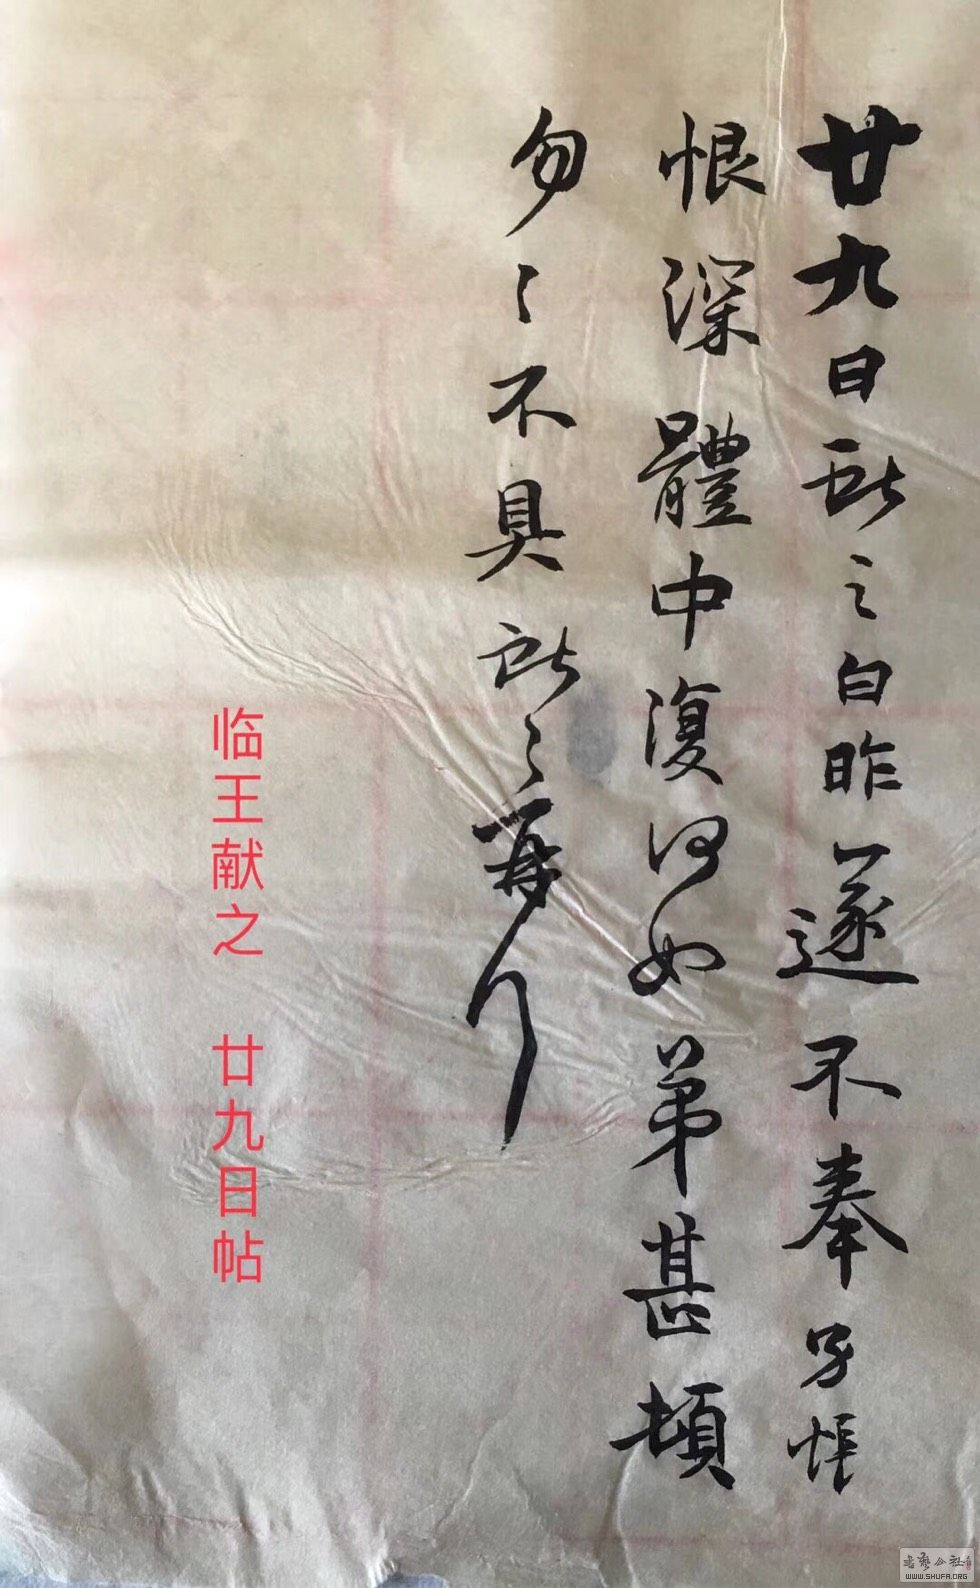 廿九日獻之白昨遂不奉別悵
恨深體中復何如弟甚頓
匆〻不具獻之再拜
临王献之 廿九日帖
书艺公社
WWW.SHUFA.ORG